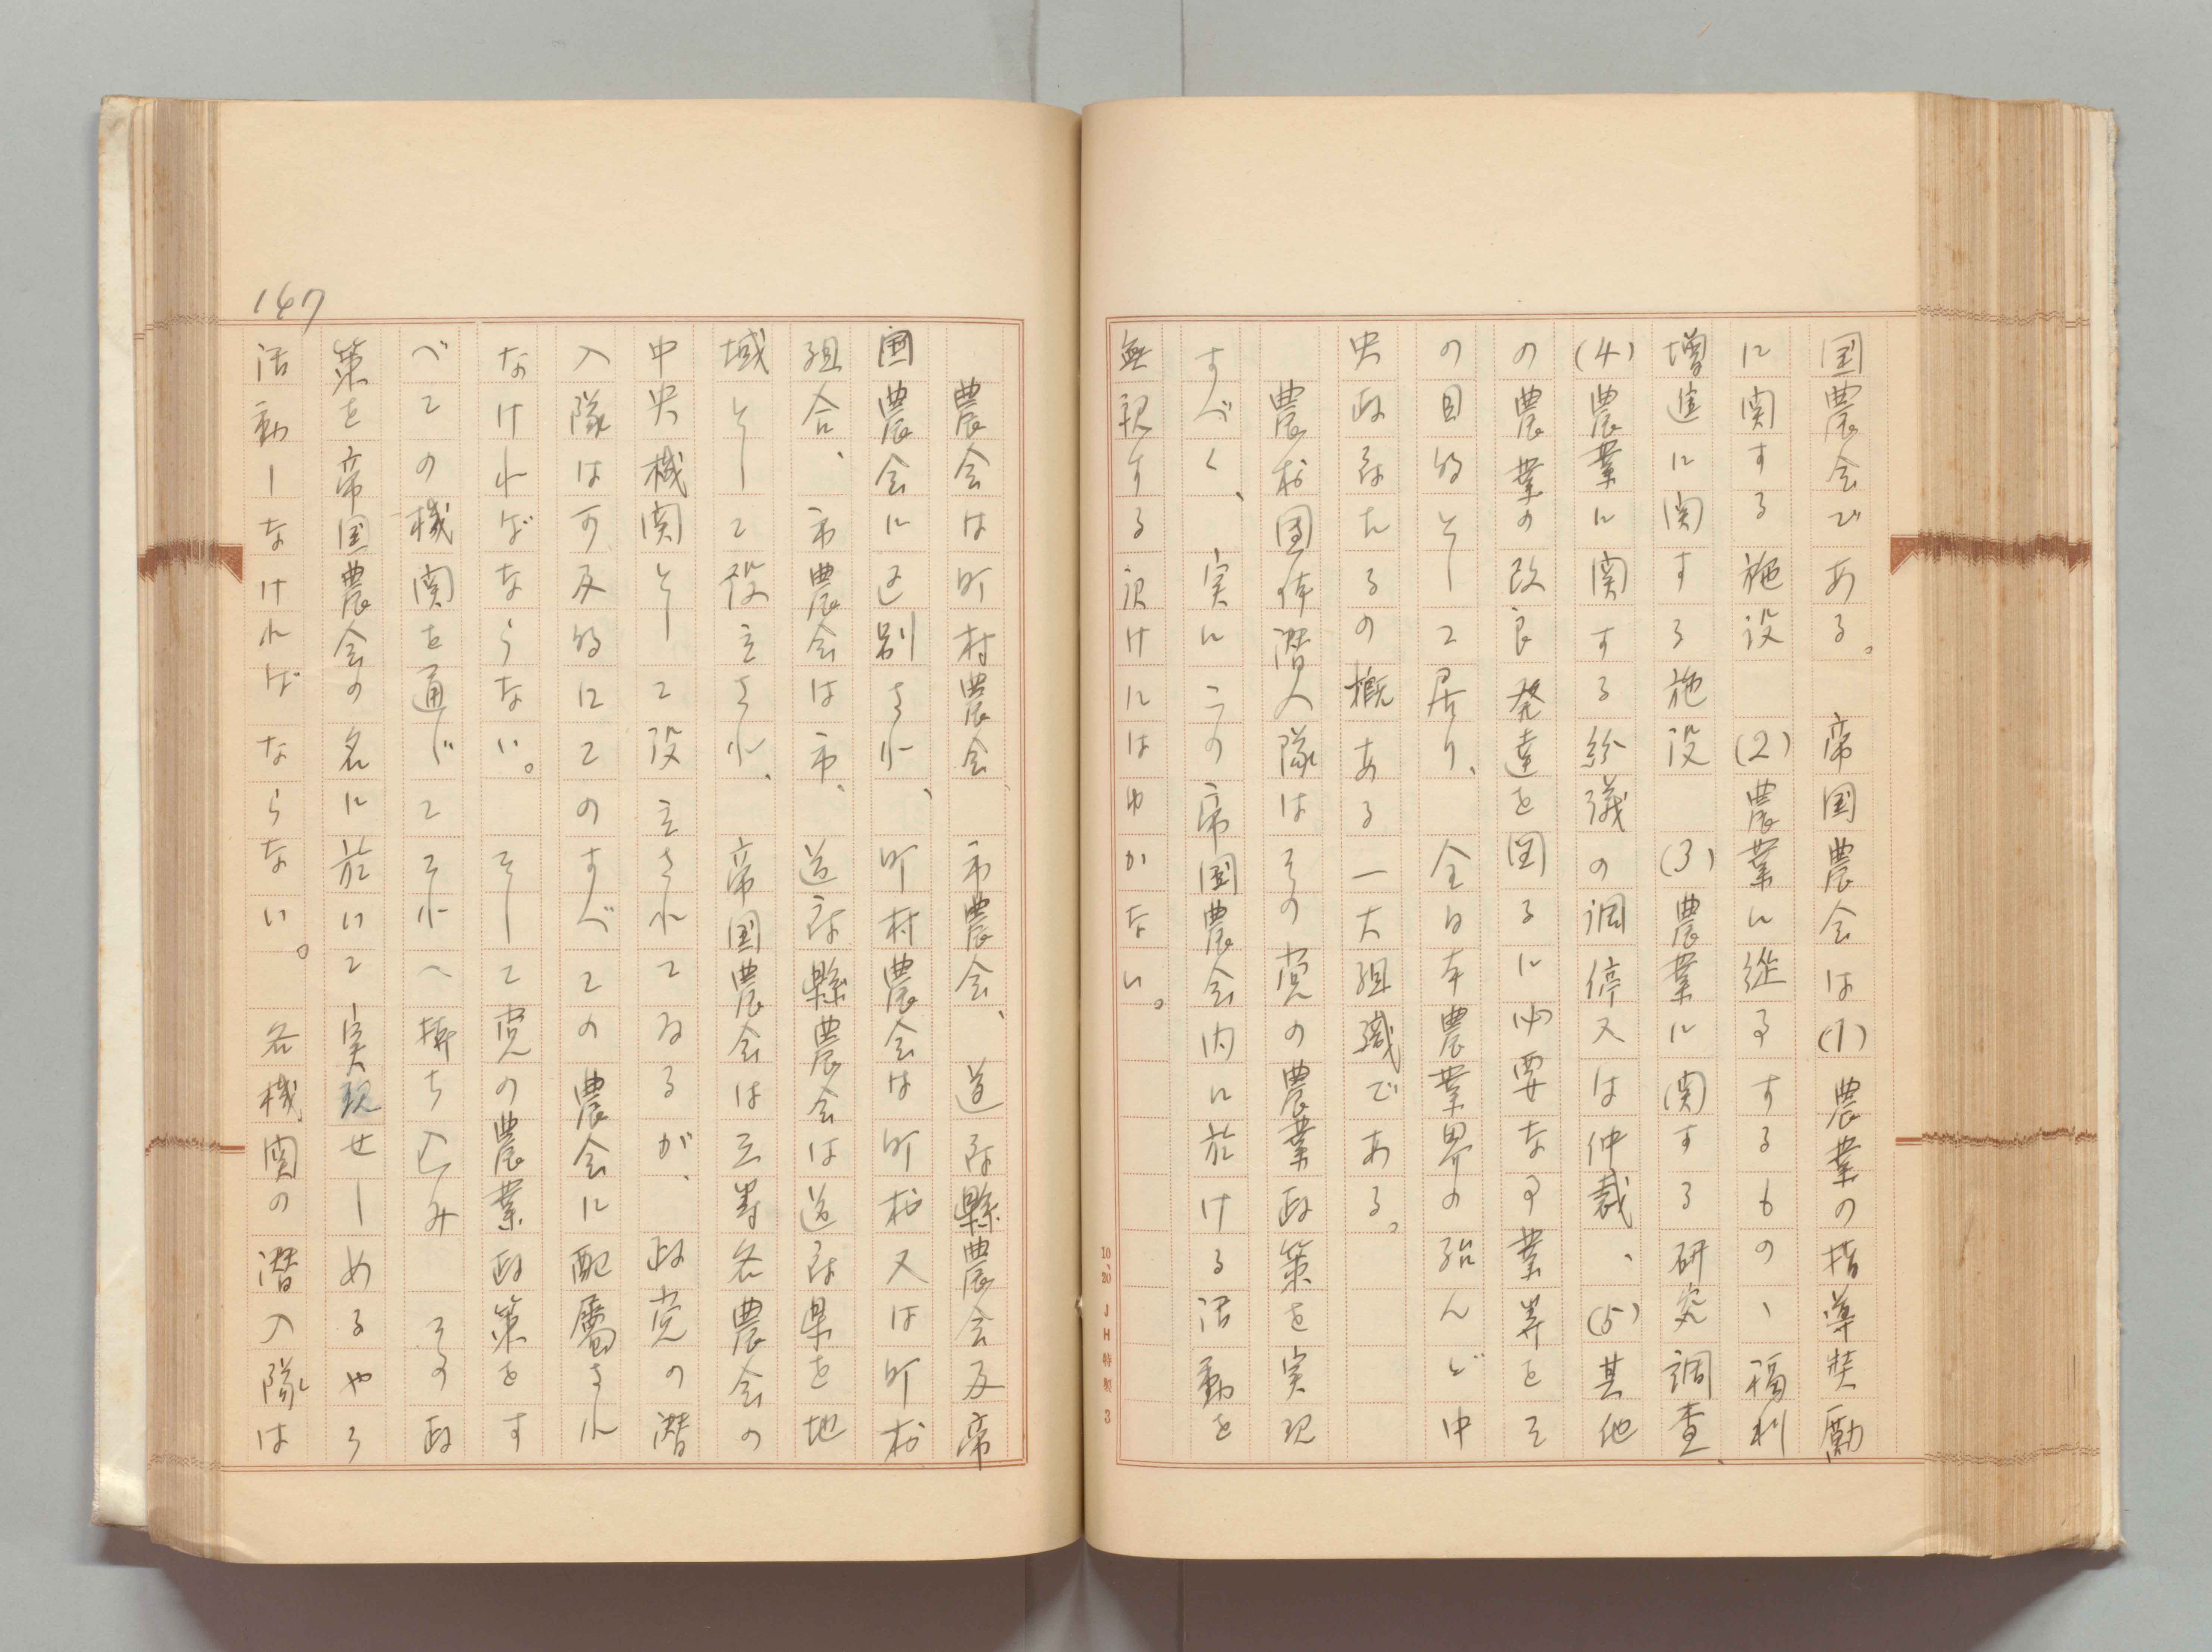 国農会である。帝国農会は(1)農業の指導奨励
に関する施設 (2)農業に従事するもの、福利
増進に関する施設 (3)農業に関する研究調査、
(4)農業に関する紛議の調停又は仲裁、(5)其他
の農業の改良発達を図るに必要なる事業等をそ
の目的として居り、全日本農業界の殆んど中
央政府たるの概ある一大組織である。
農村団体潜入隊はその党の農業政策を実現
すべく、実にこの帝国農会内に於ける活動を
無視する訳けにはゆかない。
10、20 JH特製 3
農会は町村農会、市農会、道府縣農会及帝
国農会に区別され、町村農会は町村又は町村
組合、市農会は市、道府縣農会は道府県を地
域として設立され、帝国農会は云わば各農会の
中央機関として設立されてゐるが、政党の潜
入隊は可及的にこのすべての農会に配属され
なければならない。そして党の農業政策をす
べての機関を通じてそれへ持ち込み その政
策を帝国農会の名に於いて実現せしめるやう
活動しなければならない。各機関の潜入隊は
147